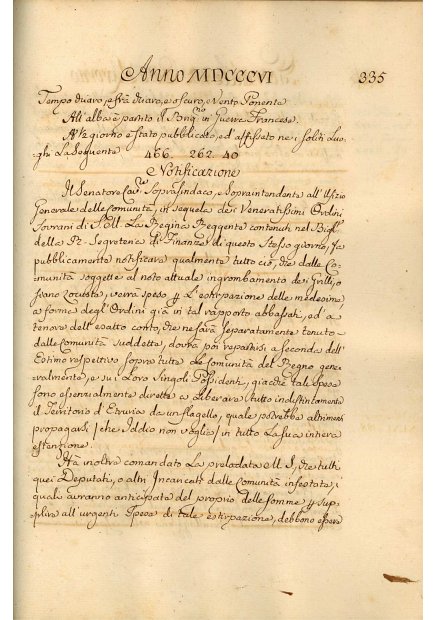 Anno MDCCCVI 335
Tempo chiaro, e frà chiaro, e oscuro, e Vento Ponente
All'alba è partito il in Guerra Francese.
A ½ giorno è stato pubblicato, ed affissato nei soliti Luo-
ghi La Seguente 466. 262. 40
Notificazione
Il Senatore Cav.re Soprasindaco, e Sopraintendente all'Ufizio
Generale delle Comunità, in sequela dei Veneratissimi Ordini
Sovrani di S. M. La Regina Reggente contenuti nel Bigl.to
della R. Segreteria di Finanze di questo stesso giorno, fà
pubblicamente notificare qualmente tutto ciò, che dalle Co-
munità soggette al noto attuale ingrombamento dei Grilli, o
siano Locuste, verrà speso p l'estirpazione delle medesime,
a forma degl'Ordini già in tal rapporto abbassati, ed a
tenore dell'esatto conto, che ne sarà separatamente tenuto
dalle Comunità suddette, dovrà poi repartirsi a seconda dell'
Estimo respettivo sopra tutte le Comunità del Regno gene-
ralmente, e sui Loro Singoli Possidenti, giacchè tali spese
sono essenzialmente dirette a Liberare tutto indistintamente
il Territorio d'Etruria da un flagello, quale potrebbe altrimenti
propagarsi / che Iddio non voglia / in tutta La sua intiera
estensione.
Hà inoltre comandato La prelodata M. S., che tutti
quei Deputati, o altri Incaricati dalle Comunità infestate, i
quali avranno anticipato del proprio delle somme p sup-
plire all'urgenti spese di tale estirpazione, debbono essere